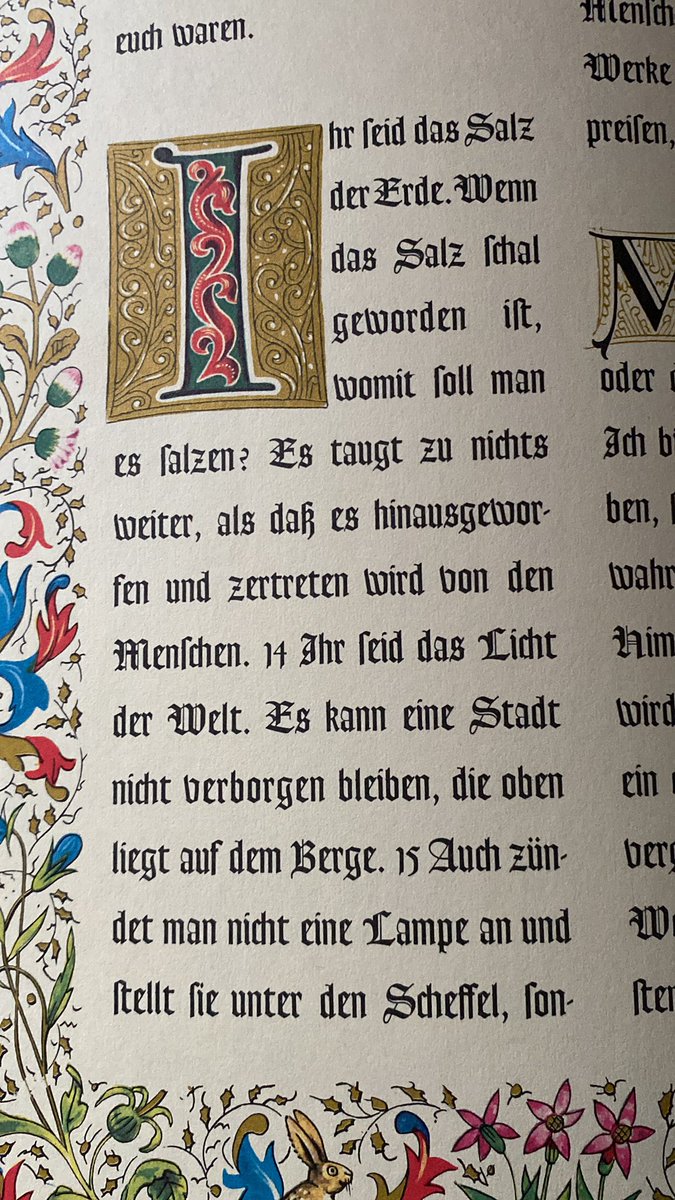 euch waren.
Ihr ſeid das Salz
der Erde. Wenn
das Salz ſchal
geworden iſt,
womit ſoll man
es ſalzen? Es taugt zu nichts
weiter, als daß es hinausgewor-
fen und zertreten wird von den
Menſchen. 14 Ihr ſeid das Licht
der Welt. Es kann eine Stadt
nicht verborgen bleiben, die oben
liegt auf dem Berge. 15 Auch zün-
det man nicht eine Lampe an und
ſtellt ſie unter den Scheffel, ſon-
Menſch
Werke
preiſen,
M
oder
Ich
ben,
wahr
Him
wird
ein
verg